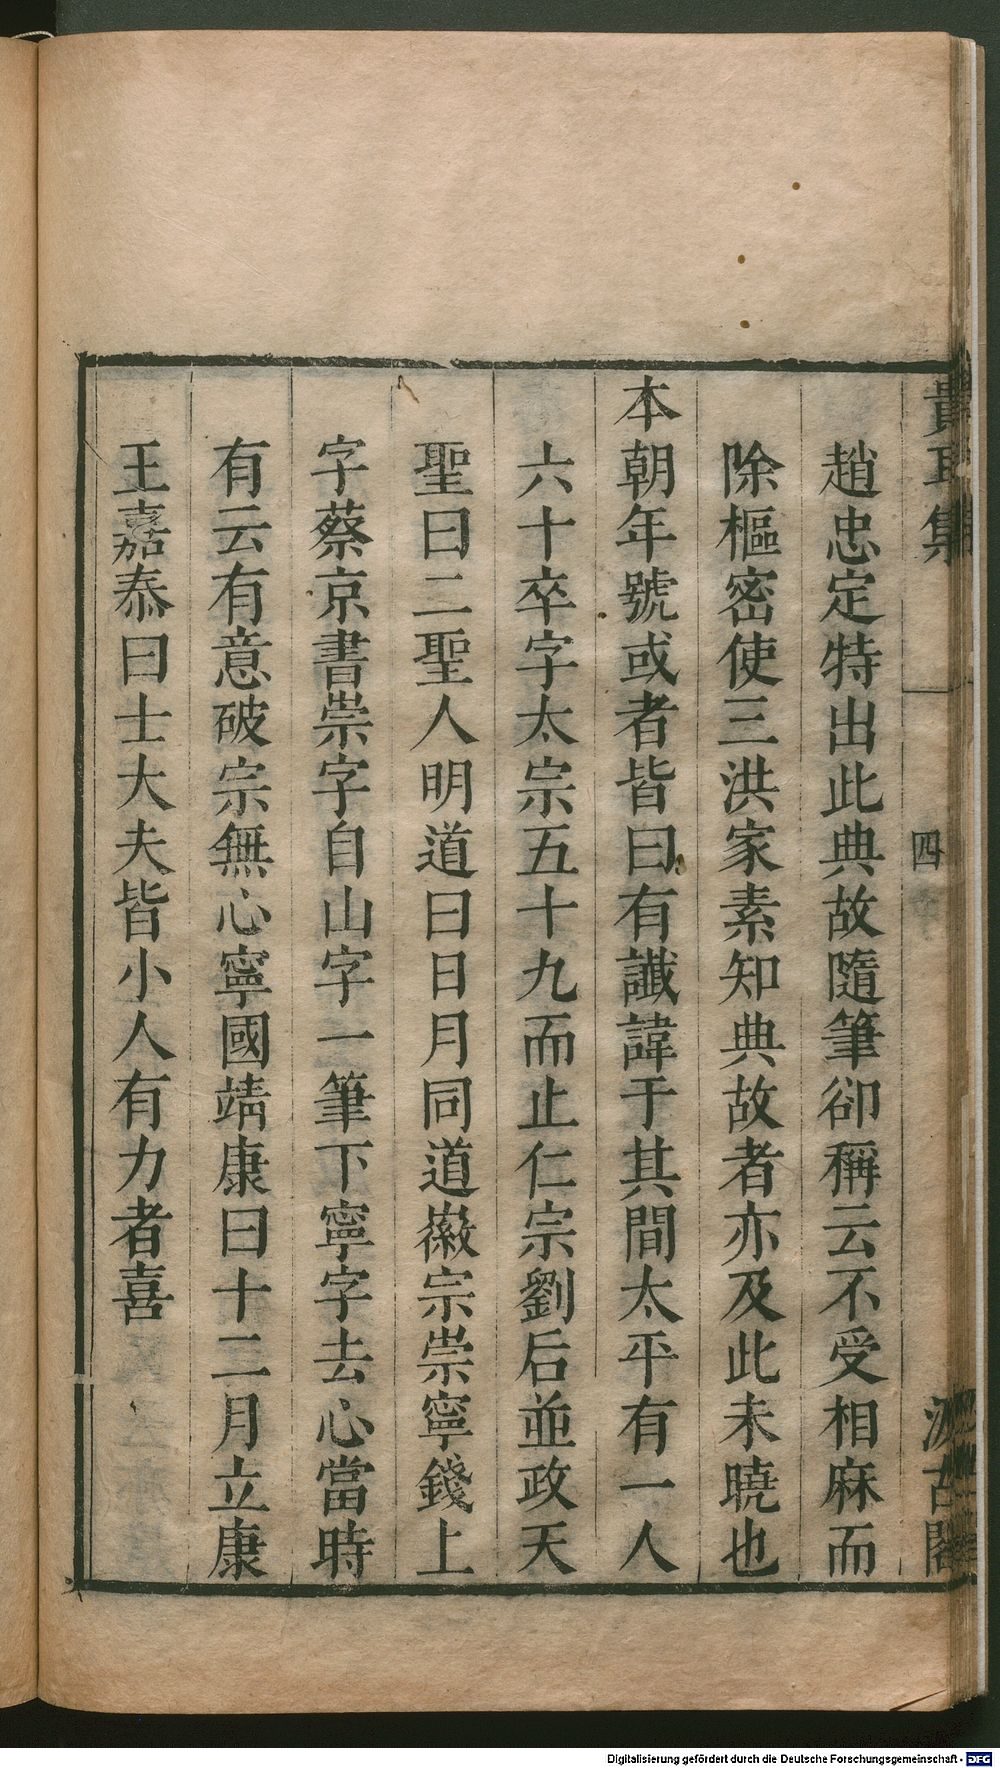 貴耳集
四
汲古閣
趙忠定特出此典故隨筆卻稱云不受相麻而
除樞密使三洪家素知典故者亦及此未曉也
本朝年號或者皆曰有讖諱于其間太平有一人
六十卒字太宗五十九而止仁宗劉后並政天
聖曰二聖人明道曰日月同道徽宗崇寧錢上
字蔡京書崇字自山字一筆下寧字去心當時
有云有意破宗無心寧國靖康曰十二月立康
王嘉泰曰士大夫皆小人有力者喜
Digitalisierung gefördert durch die Deutsche Forschungsgemeinschaft - DFG